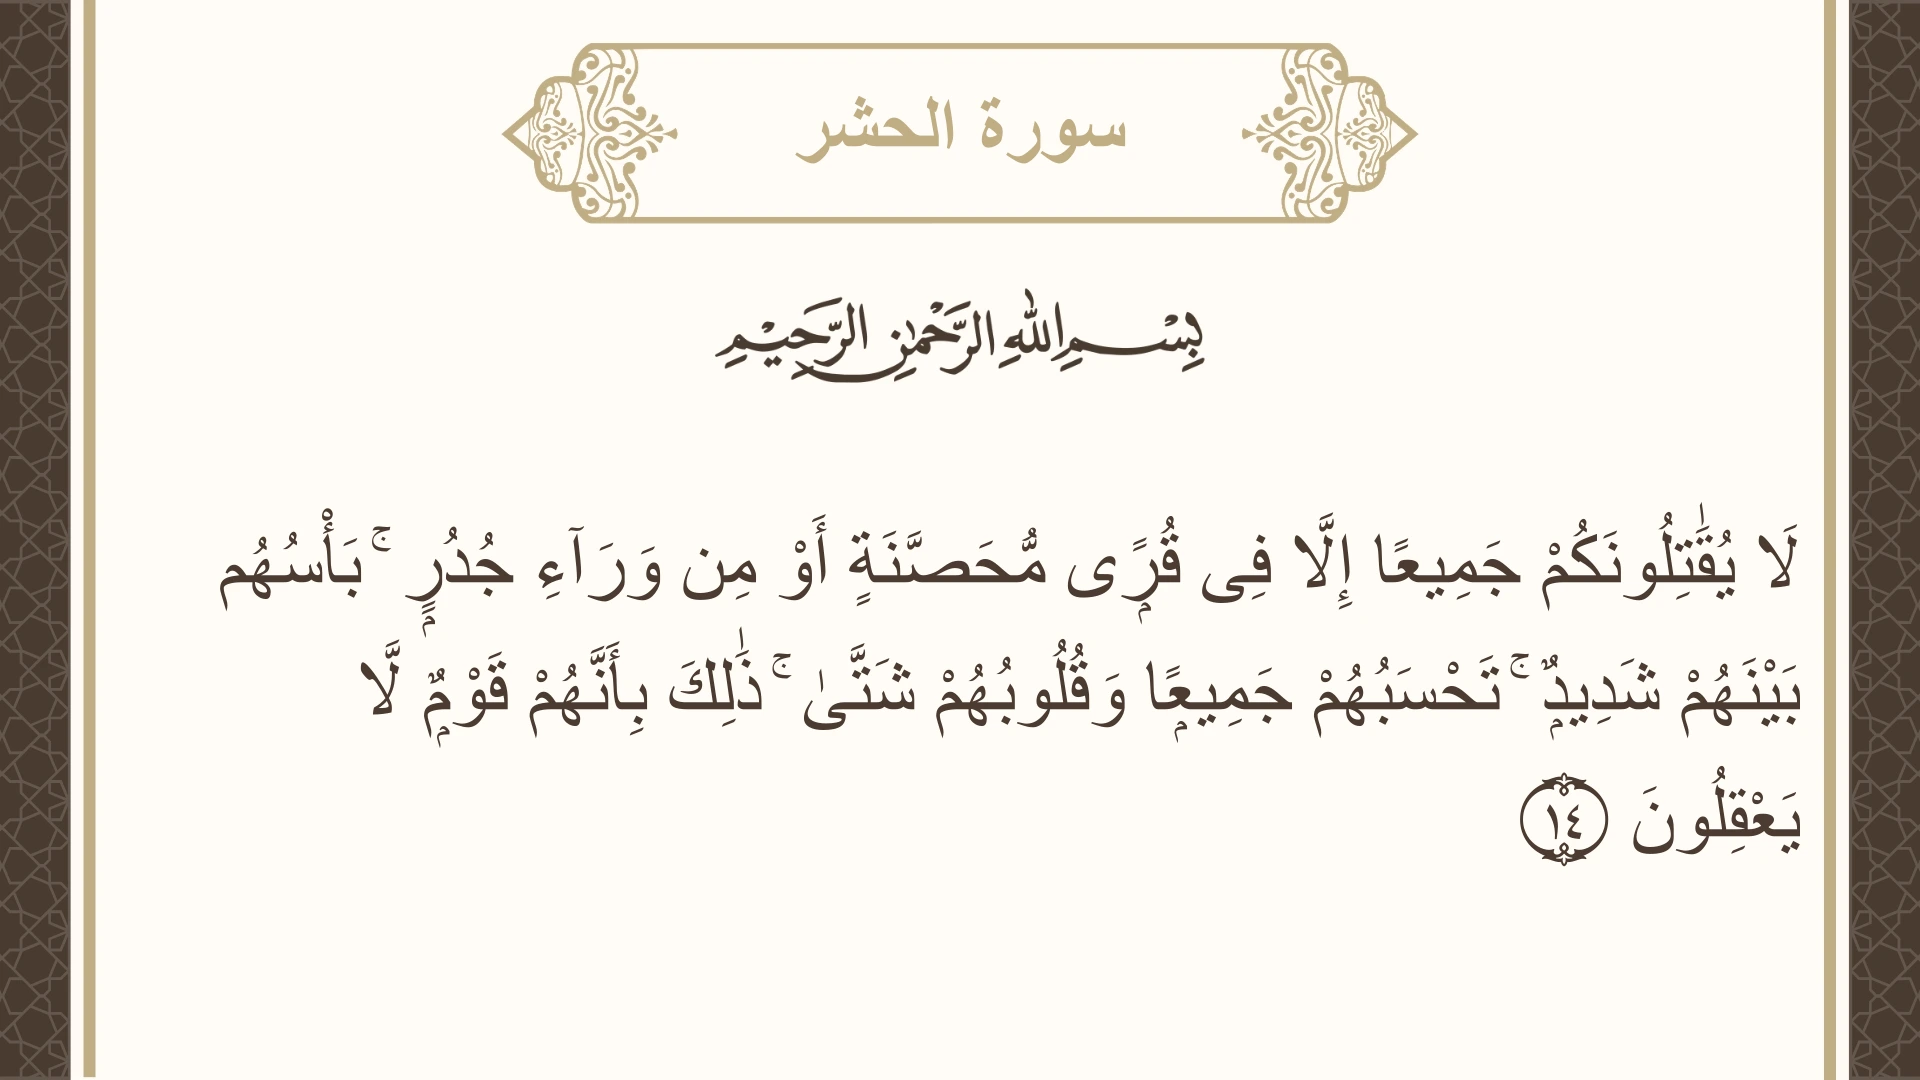 سورة الحشر
بِسْمِ اللهِ الرَّحْمٰنِ الرَّحِيْمِ
لَا يُقَٰتِلُونَكُمْ جَمِيعًا إِلَّا فِى قُرًۭى مُّحَصَّنَةٍ أَوْ مِن وَرَآءِ جُدُرٍۭ ۚ بَأْسُهُم
بَيْنَهُمْ شَدِيدٌۭ ۚ تَحْسَبُهُمْ جَمِيعًۭا وَقُلُوبُهُمْ شَتَّىٰ ۚ ذَٰلِكَ بِأَنَّهُمْ قَوْمٌۭ لَّا
يَعْقِلُونَ ١٤